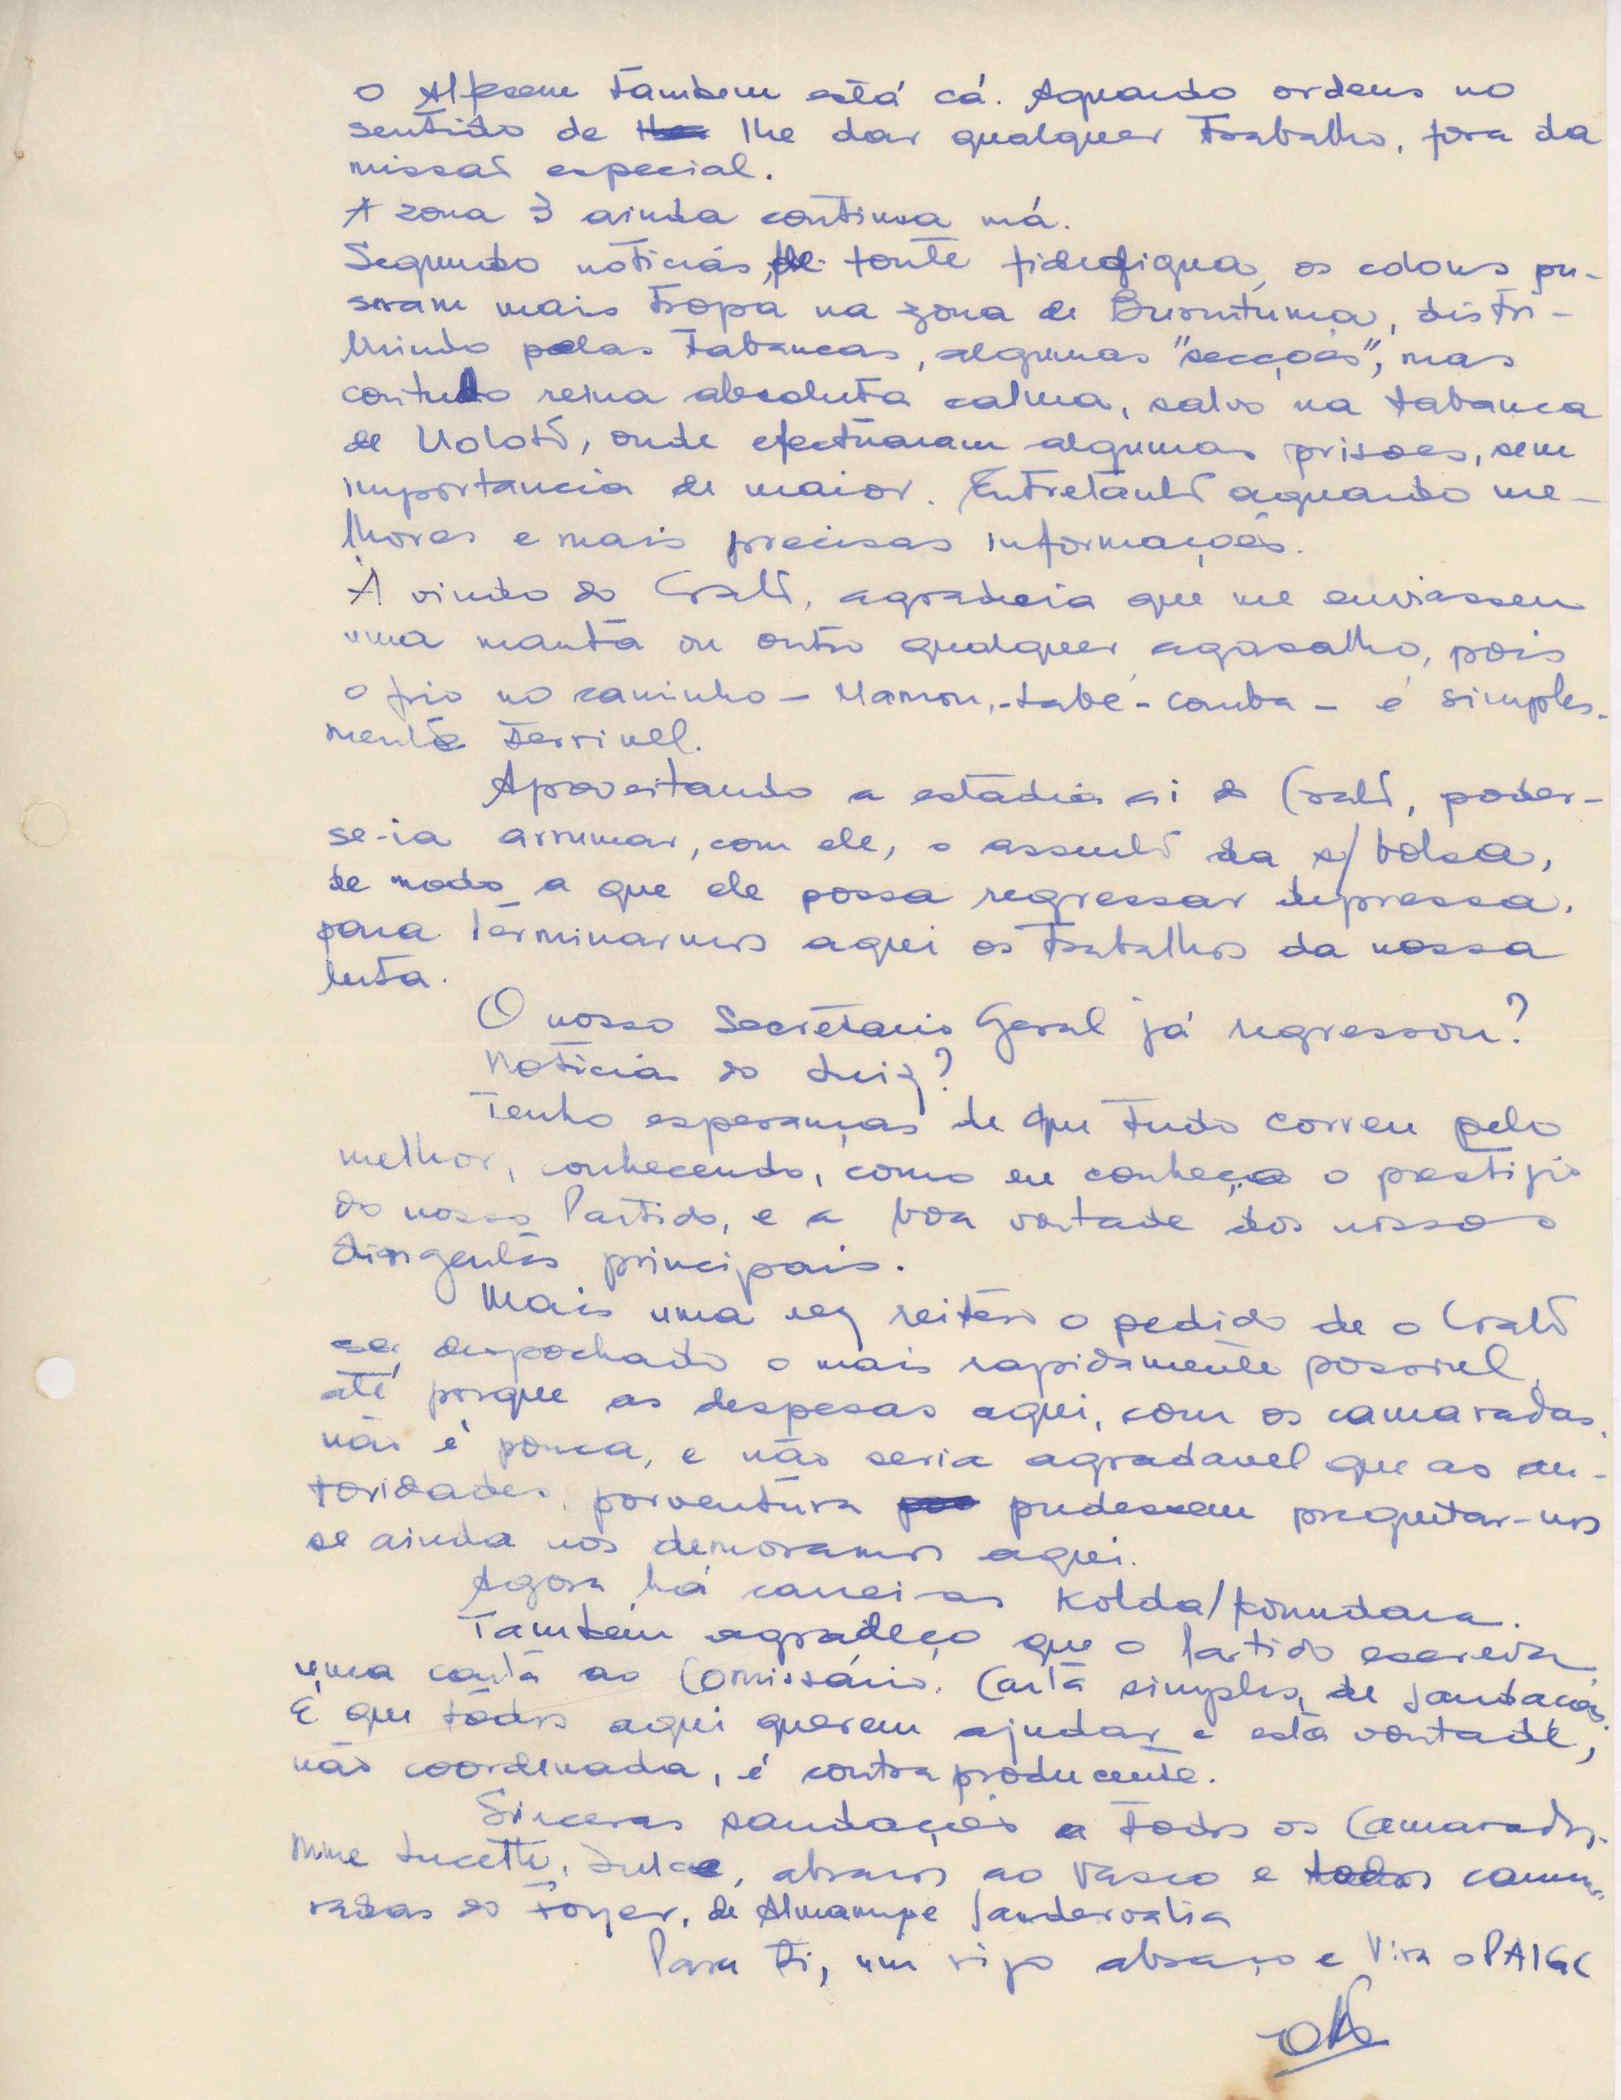 O também está cá. Aguardo ordens no
sentido de lhe dar qualquer trabalho, fora da
missaõ especial.
A zona 3 ainda continua má.
Segundo noticiás, de fonte fidedigna, os colonos pu-
seram mais tropa na zona de Buruntuma, distri-
buindo pelas tabancas, algumas "secçoẽs", mas
contudo reina absoluta calma, salvo na tabanca
de, onde efectuaram algumas prisoes, sem
importancia de maior. Entretanto aguardo me-
lhores e mais precisas informaçoẽs.
À vinda do, agradecia que me enviassem
uma manta ou outro qualquer agasalho, pois
o frio no caminho - Mamou, - Labé - - é simples-
mente terrivel.
Aproveitando a estadia ai do, poder-
se-ia arrumar, com ele, o assunto da s/ bolsa,
de modo a que ele possa regressar depressa,
para terminarmos aqui os trabalhos da nossa
luta.
O nosso Secretario Geral já regressou?
Noticias do Luiz?
Tenho esperanças de que tudo correu pelo
melhor, conhecendo, como eu conheço o prestigio
do nosso Partido, e a boa vontade dos nossos
dirigentes principais.
Mais uma vez reitero o pedido de o
ser despachado o mais rapidamente possivel,
até porque as despesas aqui, com os camaradas,
não é pouca, e não seria agradavel que as au-
toridades, porventura pudessem preguntar-nos
se ainda nos demoramos aqui.
Agora há carreiras Kolda/Koundara.
Também agradeço que o Partido escreva
uma carta ao Comissário. Carta simples, de saudação.
É que todos aqui querem ajudar e esta vontade,
não coordenada, é contraproducente.
Sinceras saudaçoẽs a todos os Camaradas.
Mme Lucette, Dulce, abraços ao Vasco e todos cama-
radas do Foyer, de
Para ti, um rijo abraço e Viva o PAIGC